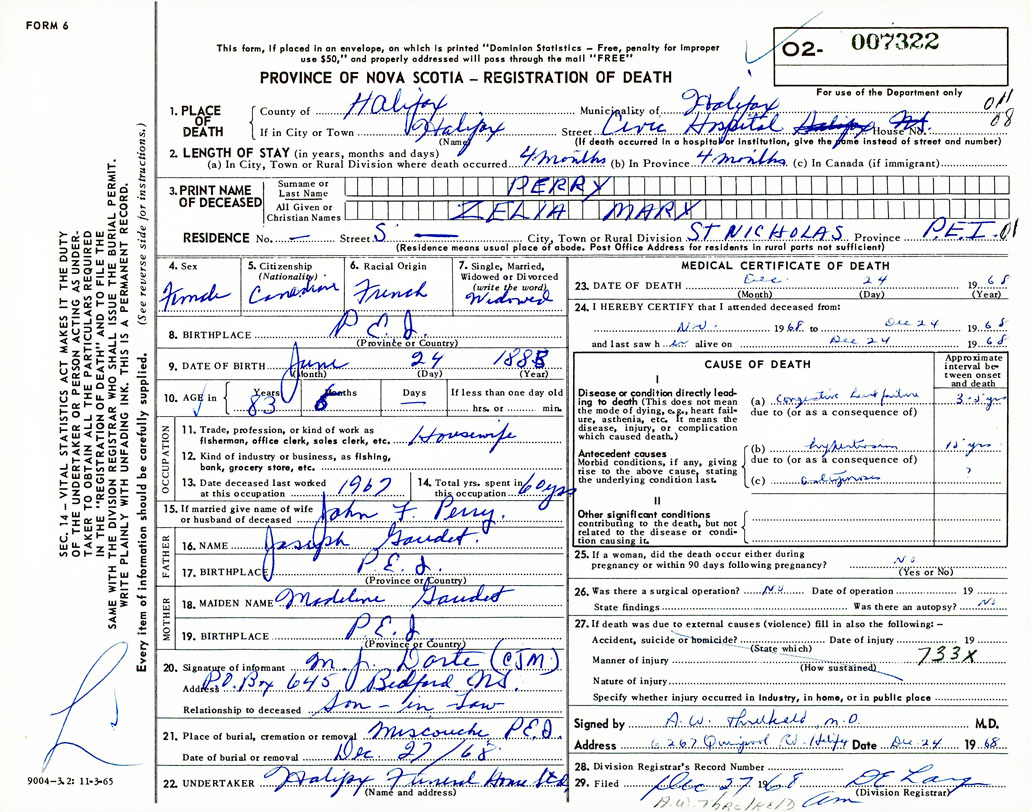 FORM 6
This form, if placed in an envelope, on which is printed "Dominion Statistics – Free, penalty for improper
use $50," and properly addressed will pass through the mail "FREE"
PROVINCE OF NOVA SCOTIA – REGISTRATION OF DEATH
O2- 007322
For use of the Department only
011
08
1. PLACE OF DEATH
County of Halifax Municipality of Halifax
If in City or Town Halifax Street Civic Hospital House No.
(Name) (If death occurred in a hospital or institution, give the name instead of street and number)
2. LENGTH OF STAY (in years, months and days)
(a) In City, Town or Rural Division where death occurred 4 months (b) In Province 4 months. (c) In Canada (if immigrant)
3. PRINT NAME OF DECEASED
Surname or Last Name PERRY
All Given or Christian Names ZELIA MARY
RESIDENCE No. — Street S — City, Town or Rural Division ST NICHOLAS Province P.E.I. 01
(Residence means usual place of abode. Post Office Address for residents in rural parts not sufficient)
4. Sex Female
5. Citizenship (Nationality) Canadian
6. Racial Origin French
7. Single, Married, Widowed or Divorced (write the word) Widowed
8. BIRTHPLACE P.E.I.
(Province or Country)
9. DATE OF BIRTH June 24 1885
(Month) (Day) (Year)
10. AGE in Years 83 Months 6 Days — If less than one day old hrs. or min.
OCCUPATION
11. Trade, profession or kind of work as fisherman, office clerk, sales clerk, etc. Housewife
12. Kind of industry or business, as fishing, bank, grocery store, etc.
13. Date deceased last worked at this occupation 1967
14. Total yrs. spent in this occupation 60 yrs
15. If married give name of wife or husband of deceased John F. Perry.
FATHER
16. NAME Joseph Gaudet.
17. BIRTHPLACE P.E.I.
(Province or Country)
MOTHER
18. MAIDEN NAME Madeline Gaudet
19. BIRTHPLACE P.E.I
(Province or Country)
20. Signature of informant M. J. (CJM)
Address P.O. Box 645 Bedford N.S.
Relationship to deceased Son-in-Law
21. Place of burial, cremation or removal Miscouche P.E.I.
Date of burial or removal Dec 27/68
22. UNDERTAKER Halifax Funeral Home Ltd
(Name and address)
MEDICAL CERTIFICATE OF DEATH
23. DATE OF DEATH Dec 24 1968
(Month) (Day) (Year)
24. I HEREBY CERTIFY that I attended deceased from:
Nov. 1968 to Dec 24 1968
and last saw her alive on Dec 24 1968
CAUSE OF DEATH
Approximate interval between onset and death
I
Disease or condition directly leading to death (This does not mean the mode of dying, e.g., heart failure, asthenia, etc. It means the disease, injury, or complication which caused death.)
(a) Congestive heart failure 3-5 yrs
due to (or as a consequence of)
Antecedent causes
Morbid conditions, if any, giving rise to the above cause, stating the underlying condition last.
(b) hypertension 15 yrs
due to (or as a consequence of) ?
(c)
II
Other significant conditions contributing to the death, but not related to the disease or condition causing it.
25. If a woman, did the death occur either during pregnancy or within 90 days following pregnancy? No
(Yes or No)
26. Was there a surgical operation? No Date of operation 19
State findings Was there an autopsy? No
27. If death was due to external causes (violence) fill in also the following: –
Accident, suicide or homicide? Date of injury 19
(State which)
Manner of injury 733X
(How sustained)
Nature of injury
Specify whether injury occurred in industry, in home, or in public place
Signed by A.W. Threlkeld, M.D. M.D.
Address 6267 Quinpool Rd. Date Dec 24 1968
28. Division Registrar's Record Number
29. Filed Dec 27 1968
(Division Registrar)
A.W. THRELKELD
SEC. 14 – VITAL STATISTICS ACT MAKES IT THE DUTY
OF THE UNDERTAKER OR PERSON ACTING AS UNDER-
TAKER TO OBTAIN ALL THE PARTICULARS REQUIRED
IN THE "REGISTRATION OF DEATH" AND TO FILE THE
SAME WITH THE DIVISION REGISTRAR WHO SHALL ISSUE THE BURIAL PERMIT.
WRITE PLAINLY WITH UNFADING INK. THIS IS A PERMANENT RECORD.
Every item of information should be carefully supplied. (See reverse side for instructions.)
9004-3.2: 11-3-65